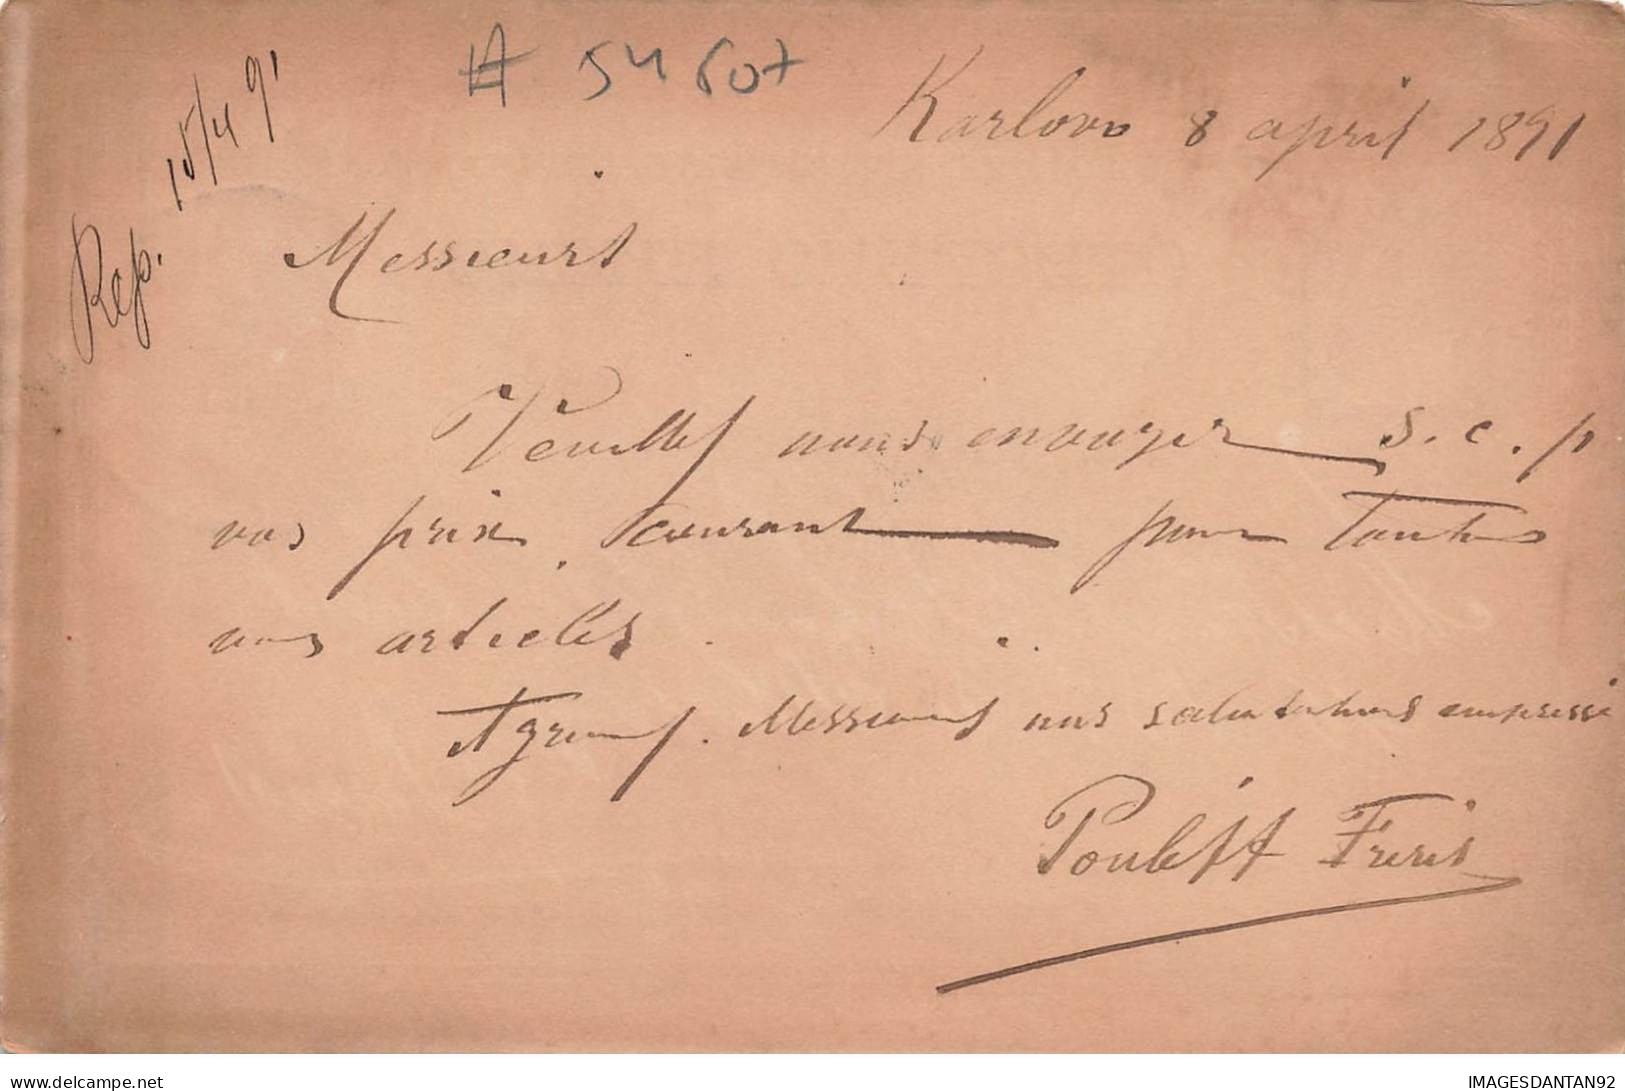 # 54607
Karlovo 8 april 1891
Rep. 15/4 91
Messieurs
Veuillez nous envoyer s. c. p
vos prix courant pour toutes
vos articles
Agreez. Messieurs nos salutations empressé
Pouleff Freres
delcampe.net
IMAGESDANTAN92